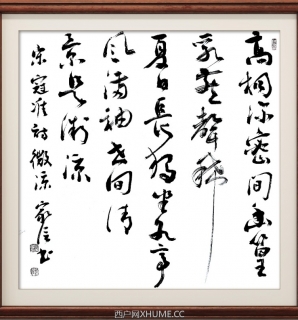 高桐深密间幽篁
乳燕聲稀
夏日長独坐水亭
风满袖世间清
景是微凉
宋寇准诗微凉
西户网XHUME.CC